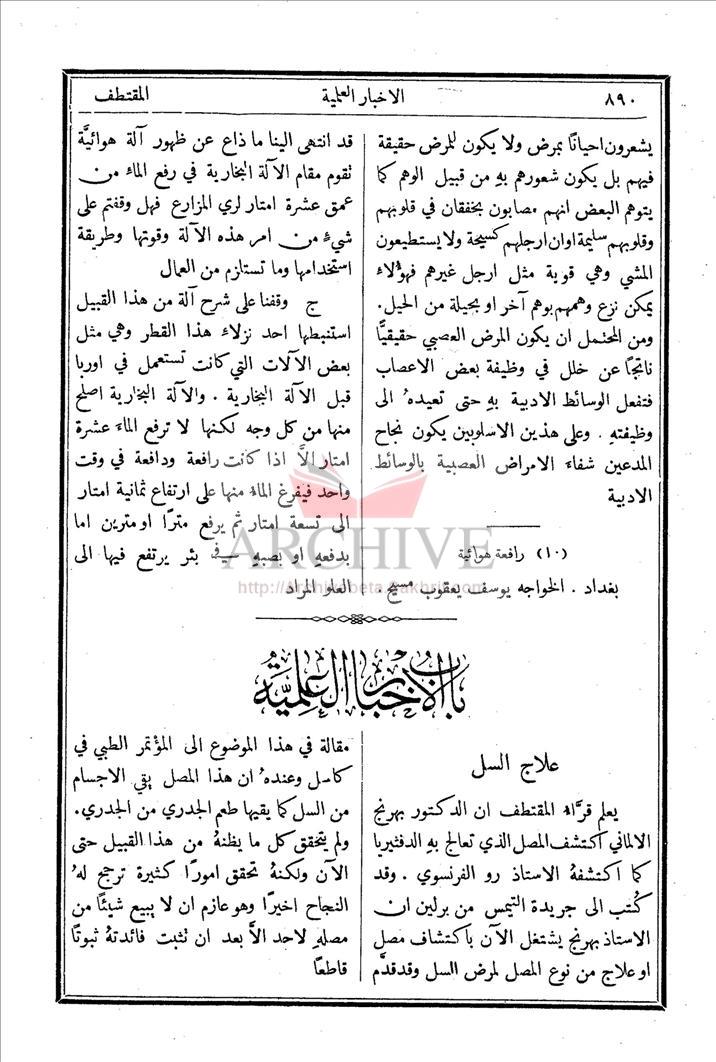 ٨٩٠
الاخبار العلمية
المقتطف
يشعرون احيانًا بمرض ولا يكون للمرض حقيقة
فيهم بل يكون شعورهم بهِ من قبيل الوهم كما
يتوهم البعض انهم مصابون بخفقان في قلوبهم
وقلوبهم سليمة اوان ارجلهم كسيحة ولا يستطيعون
المشي وهي قوية مثل ارجل غيرهم فهؤلاء
يمكن نزع وهمهم بوهم آخر او بحيلة من الحيل.
ومن المحتمل ان يكون المرض العصبي حقيقيًّا
ناتجًا عن خلل في وظيفة بعض الاعصاب
فتفعل الوسائط الادبية بهِ حتى تعيدهُ الى
وظيفتهِ . وعلى هذين الاسلوبين يكون نجاح
المدعين شفاء الامراض العصبية بالوسائط
الادبية
(١٠) رافعة هوائية
بغداد . الخواجه يوسف يعقوب مسيح .
قد انتهى الينا ما ذاع عن ظهور آلة هوائيَّة
تقوم مقام الآلة البخارية في رفع الماء من
عمق عشرة امتار لري المزارع فهل وقفتم على
شيءٍ من امر هذه الآلة وقوتها وطريقة
استخدامها وما تستلزم من العمال
ج وقفنا على شرح آلة من هذا القبيل
استنبطها احد نزلاء هذا القطر وهي مثل
بعض الآلات التي كانت تستعمل في اوربا
قبل الآلة البخارية . والآلة البخارية اصلح
منها من كل وجه لكنها لا ترفع الماء عشرة
امتار الاَّ اذا كانت رافعة ودافعة في وقت
واحد فيفرغ الماء منها على ارتفاع ثمانية امتار
الى تسعة امتار ثم يرفع مترًا او مترين اما
بدفعهِ او بصبهِ في بئر يرتفع فيها الى
العلو المراد
ARCHIVE
باب الاخبار العلميَّة
علاج السل
يعلم قرَّاء المقتطف ان الدكتور بهرنج
الالماني اكتشف المصل الذي تعالج بهِ الدفثيريا
كما اكتشفهُ الاستاذ رو الفرنسوي . وقد
كُتب الى جريدة التيمس من برلين ان
الاستاذ بهرنج يشتغل الآن باكتشاف مصل
او علاج من نوع المصل لمرض السل وقد قدَّم
مقالة في هذا الموضوع الى المؤتمر الطبي في
كاسل وعندهُ ان هذا المصل يقي الاجسام
من السل كما يقيها طعم الجدري من الجدري.
ولم يتحقق كل ما يظنهُ من هذا القبيل حتى
الآن ولكنهُ تحقق امورًا كثيرة ترجح لهُ
النجاح اخيرًا وهو عازم ان لا يبيع شيئًا من
مصلهِ لاحد الاَّ بعد ان تثبت فائدتهُ ثبوتًا
قاطعًا